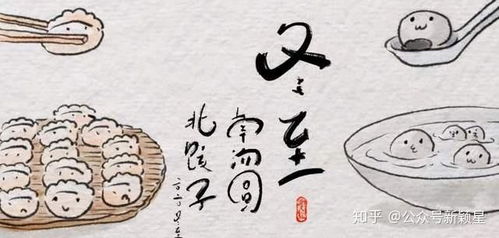 冬至
南汤圆
北饺子
知乎 @公众号新颖星